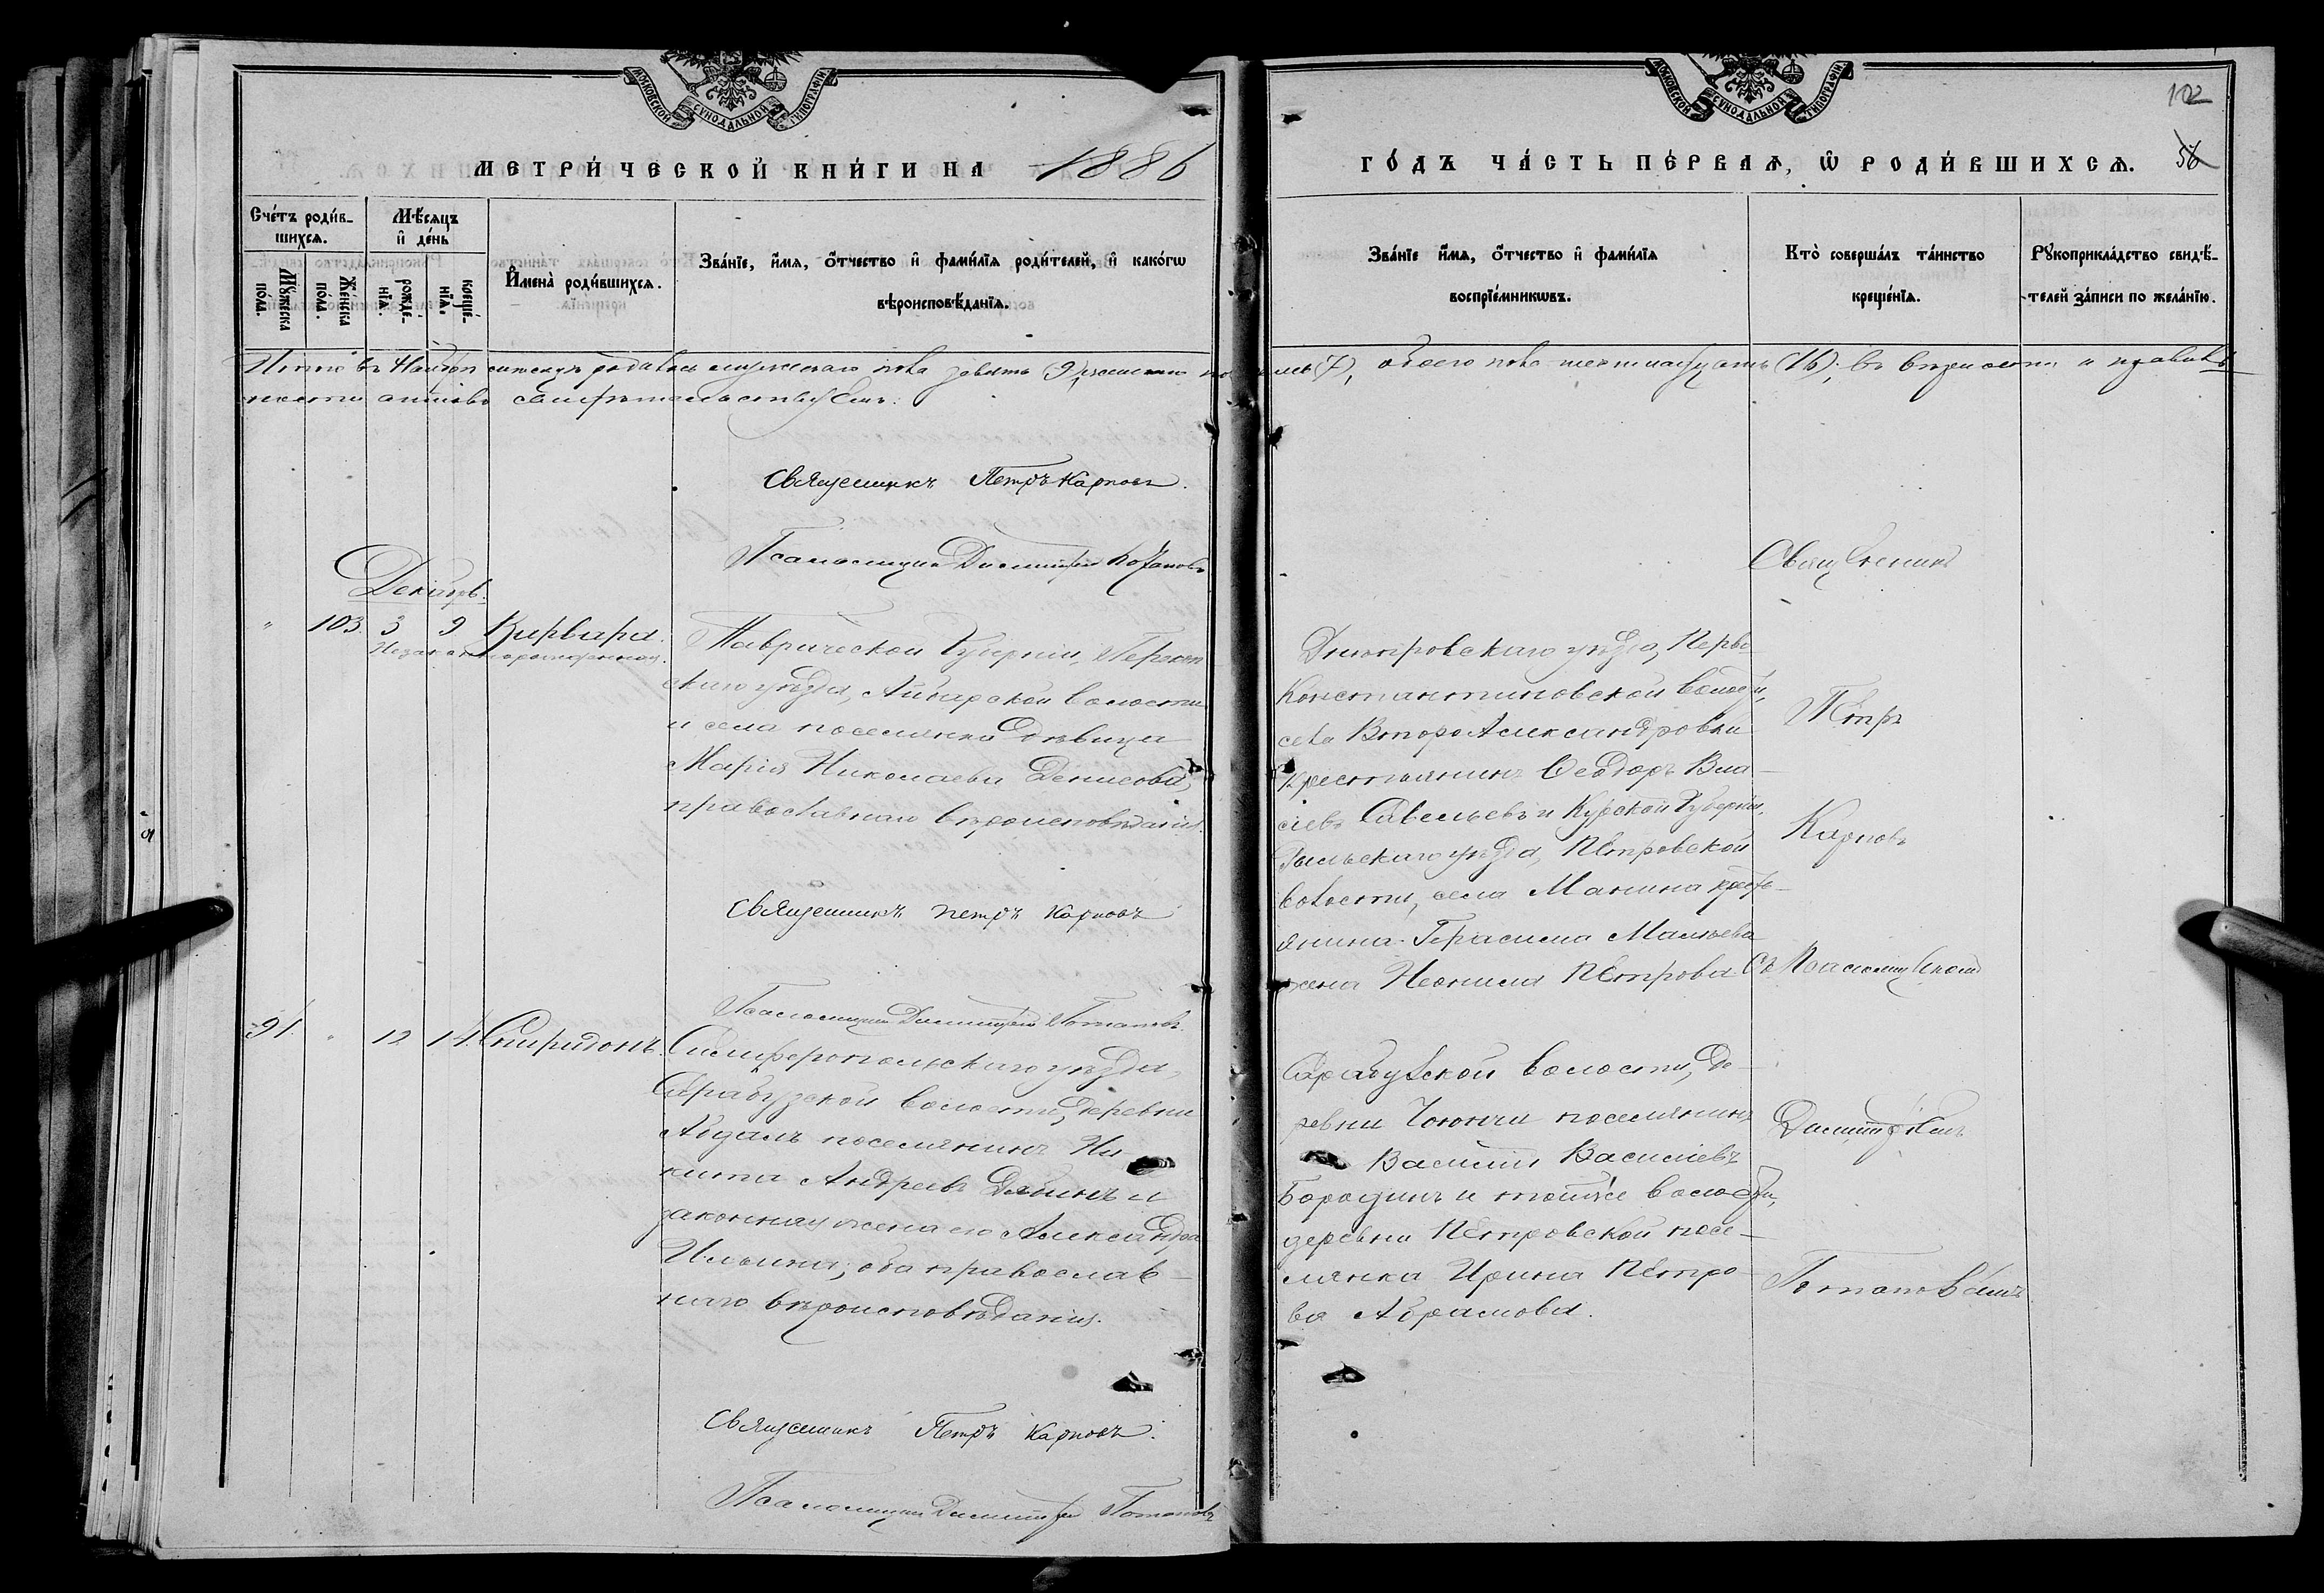 МОСКОВСКОЙ СУНОДАЛЬНОЙ ТИПОГРАФІИ
МЕТРИ́ЧЕСКОЙ КНИ́ГИ НА 1886
Счéтъ роди́в-
шихсѧ.
Мꙋ́жеска по́ла.
Же́нска по́ла.
Мѣ́сѧцъ
и҆ де́нь
рожде́-
нїѧ.
креще́-
нїѧ.
И҆менà роди́вшихсѧ.
Зва́нїе, и҆́мѧ, ѻ҆́тчество и҆ фами́лїѧ роди́телей, и҆ како́гѡ
вѣроисповѣ́данїѧ.
Итого въ Ноябрѣ мѣсяцѣ родилось мужескаго пола девять (9), женскаго
ности актовъ свидѣтельствуемъ:
Священникъ Петръ Карповъ.
Псаломщикъ Димитрій Потаповъ
Декабрь.
" 103. 3 9 Варвара.
Незаконнорожденная.
Таврической Губерніи, Перекоп
скаго уѣзда, Айбарской волости
и села поселянка дѣвица
Марія Николаева Денисова,
православнаго вѣроисповѣданія.
Священникъ Петръ Карповъ
Псаломщикъ Димитрій Потаповъ.
91. " 12 14. Спиридонъ.
Симферопольскаго уѣзда,
Сарабузской волости, деревни
Абдалъ поселянинъ Ни
кита Андреевъ и
законная жена его Александра
Ильина; оба православ-
наго вѣроисповѣданія.
Священникъ Петръ Карповъ.
Псаломщикъ Димитрій Потаповъ
МОСКОВСКОЙ СУНОДАЛЬНОЙ ТИПОГРАФІИ
102
56
ГО́ДЪ ЧА́СТЬ ПЕ́РВАѦ, Ѡ҆ РОДИ́ВШИХСѦ.
Зва́нїе и҆́мѧ, ѻ҆́тчество и҆ фами́лїѧ
воспрїе́мникѡвъ.
Ктò соверша́лъ та́инство
креще́нїѧ.
Рꙋкоприкла́дство свидѣ́-
телей за́писи по жела́нїю.
(7), обоего пола шестнадцать (16); въ вѣрности и правиль
Днѣпровскаго уѣзда, Перво
Константиновской волости,
села Второ Александровки
Крестьянинъ Ѳеодоръ Вла-
сіевъ Савельевъ и Курской Губерніи,
Рыльскаго уѣзда, Петровской
волости, села Манина крест-
янина Герасима Малѣева
жена Неонила Петрова.
Священникъ
Петръ
Карповъ
Съ Псаломщикомъ
Сарабузской волости, де-
ревни Чоюнчи поселянинъ
Василій Василіевъ
Бородинъ и той же волости,
деревни Петровской посе-
лянка Ирина Петро-
ва Абрамова.
Димитріемъ
Потаповымъ